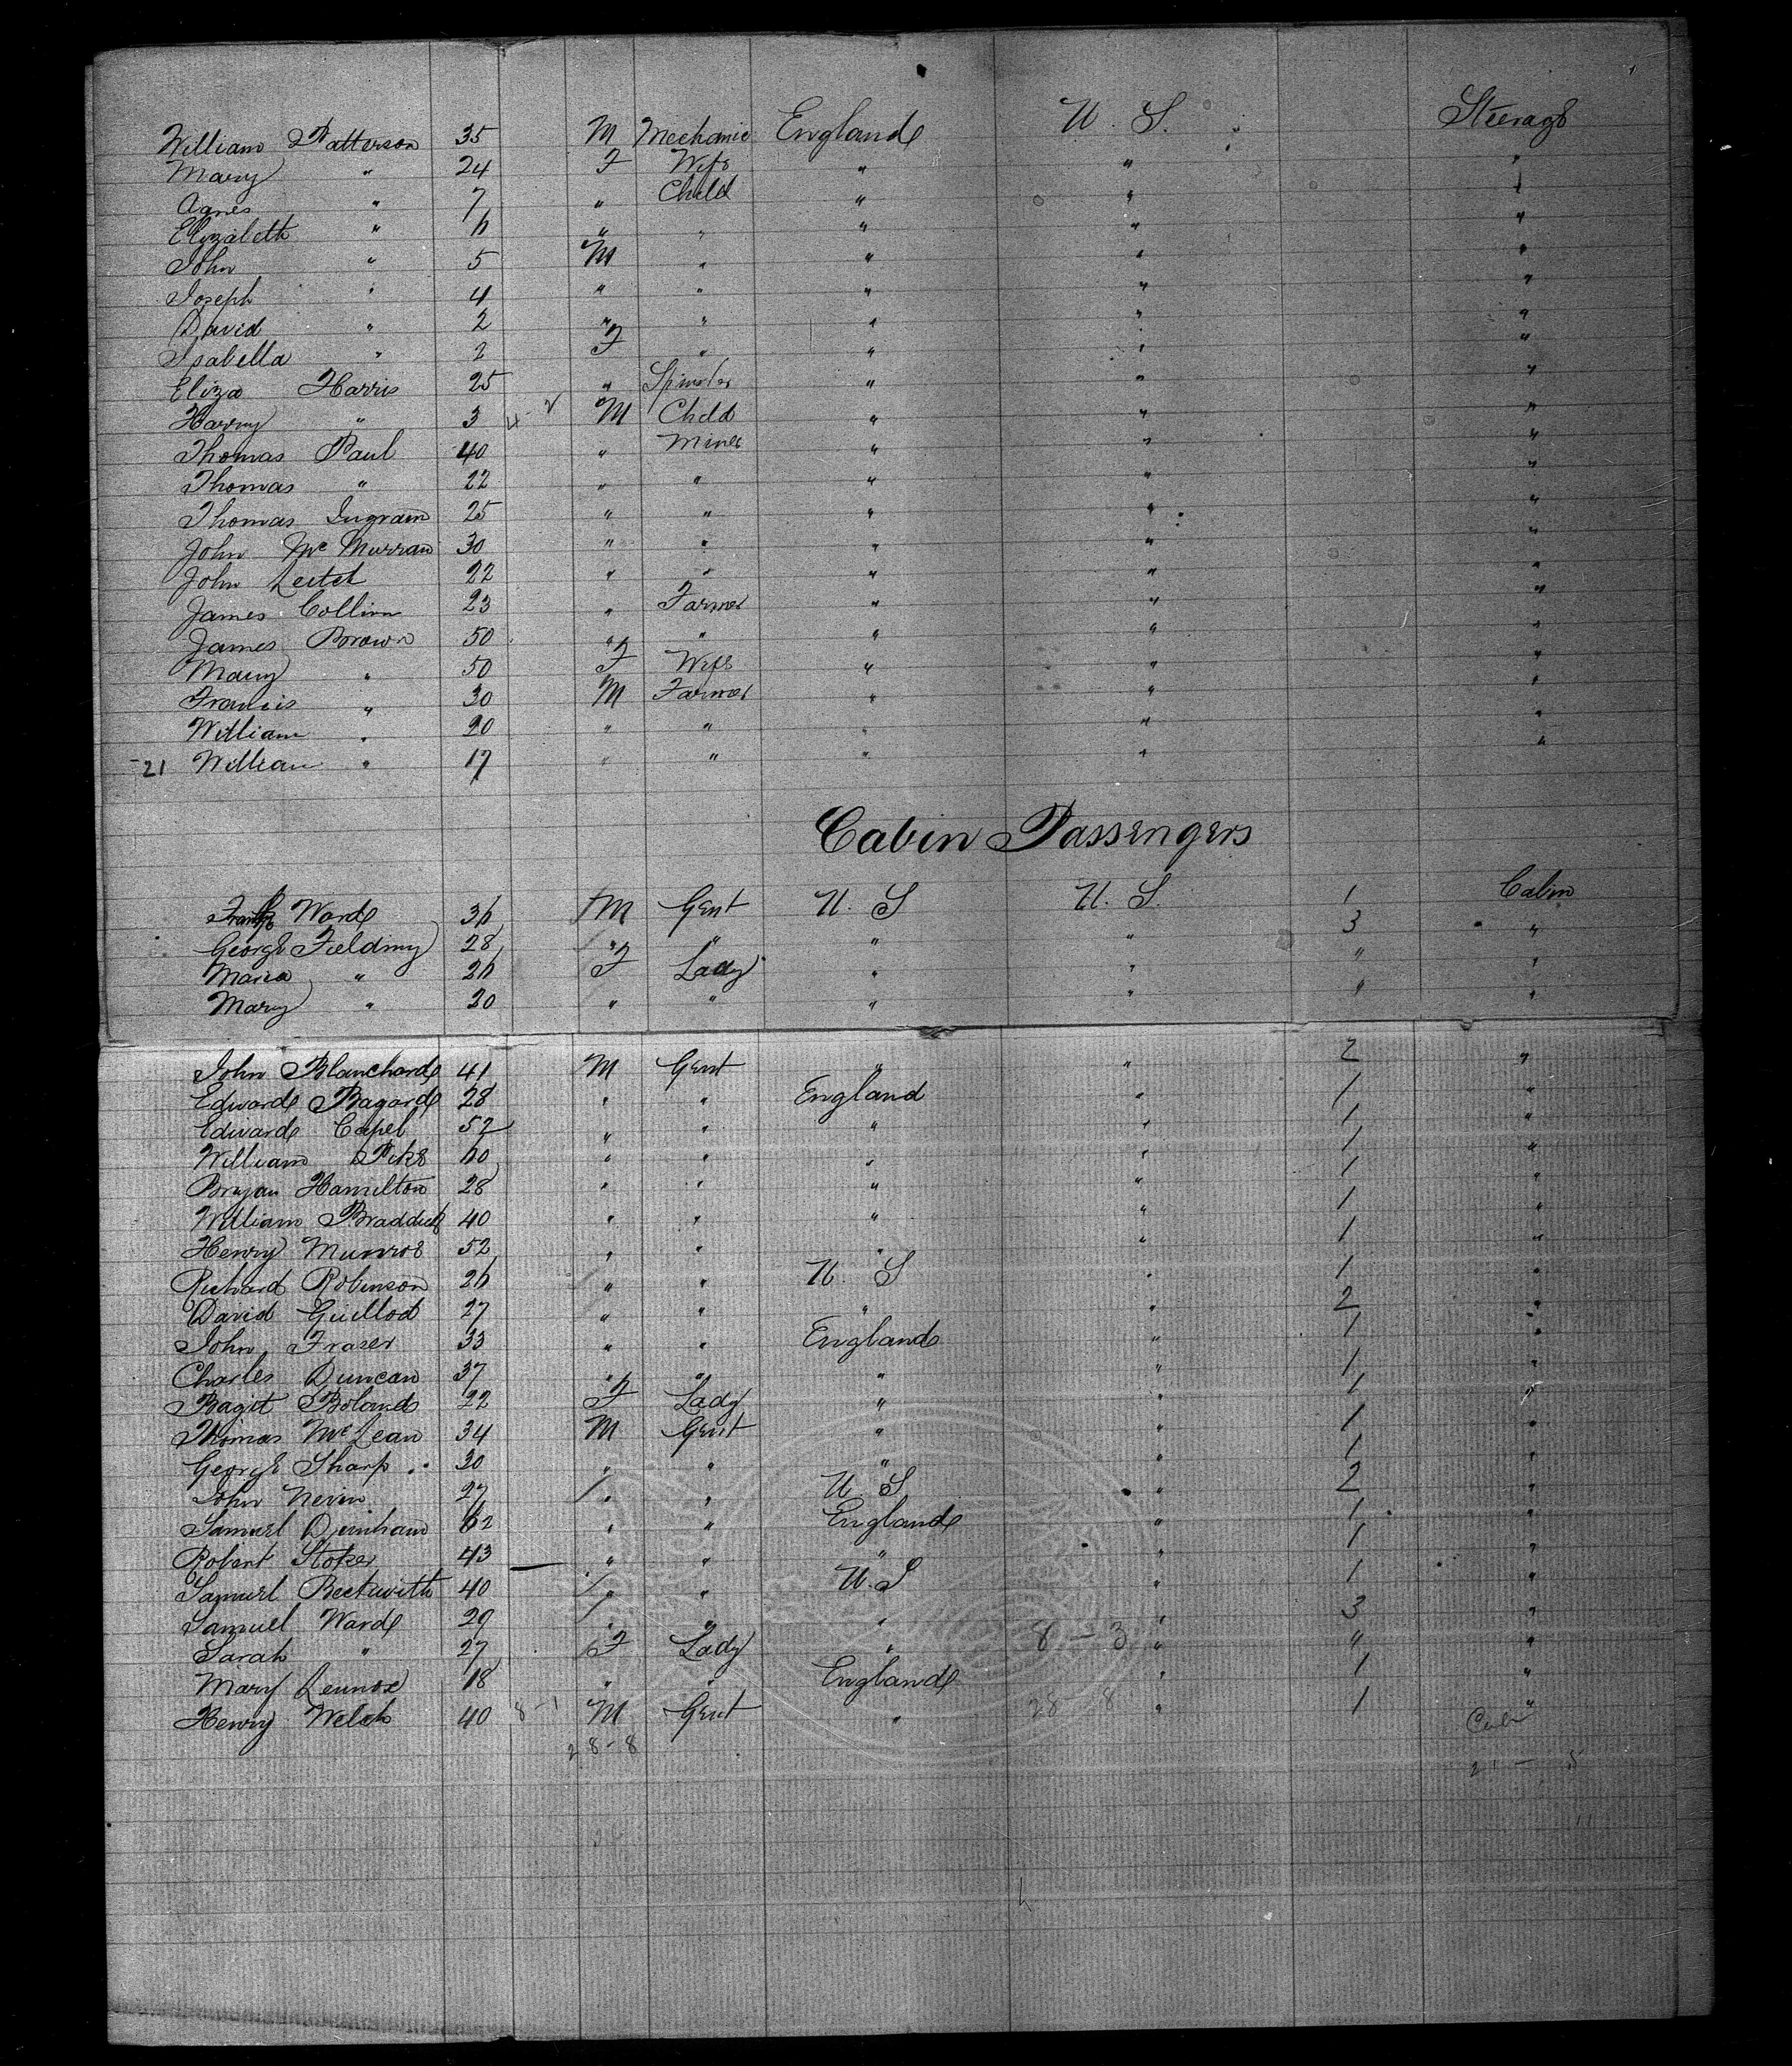 William Patterson 35 M Mechanic England U. S. Steerage
Mary " 24 F Wife " " "
Agnes " 7 " Child " " "
Elizabeth " 6 " " " " "
John " 5 M " " " "
Joseph " 4 " " " " "
David " 2 " " " " "
Isabella " 2 F " " " "
Eliza Harris 25 " Spinster " " "
Harry " 3 M Child " " "
Thomas Paul 40 " Miner " " "
Thomas " 22 " " " " "
Thomas Ingram 25 " " " " "
John Mc Murran 30 " " " " "
John Leitch 22 " " " " "
James Collinn 23 " Farmer " " "
James Brown 50 " " " " "
Mary " 50 F Wife " " "
Francis " 30 M Farmer " " "
William " 20 " " " " "
21 William " 17 " " " " "
Cabin Passengers
Ward 36 M Gent U. S U. S. 1 Cabin
George Fielding 28 " " " " 3 "
Maria " 26 F Lady " " " "
Mary " 20 " " " " " "
John Blanchard 41 M Gent " " 2 "
Edward Bagard 28 " " England " 1 "
Edward Capel 52 " " " " 1 "
William Pike 60 " " " " 1 "
Bryan Hamilton 28 " " " " 1 "
William Braddick 40 " " " " 1 "
Henry Munroe 52 " " " " 1 "
Richard Robinson 26 " " U. S " 1 "
David Guillod 27 " " " " 2 "
John Fraser 33 " " England " 1 "
Charles Duncan 37 " " " " 1 "
Bagit Bolands 22 F Lady " " 1 "
Thomas McLean 34 M Gent " " 1 "
George Sharp 30 " " " " 1 "
John Nevin 27 " " U. S " 2 "
Samuel Durnham 62 " " England " 1 "
Robert Stoker 43 " " " " 1 "
Samuel Beckwith 40 " " U. S " 1 "
Samuel Ward 29 " " " " 3 "
Sarah " 27 F Lady " 8 - 3 " " "
Mary Lennox 18 " " England " 1 "
Henry Welch 40 8-1 M Gent " 28-8 " 1 "
28-8
21 - 5